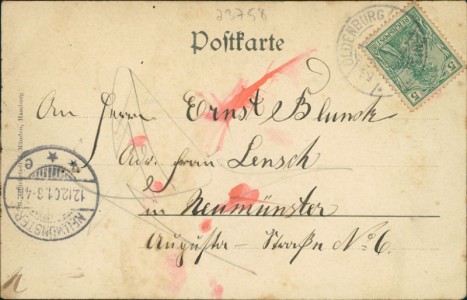 23758
Postkarte
OLDENBURG
5
An Herrn Ernst Blunck
Adr. Frau Lensch
in Neumünster
Augusta-Straße No 6.
NEUMÜNSTER
12.12.01.3-4